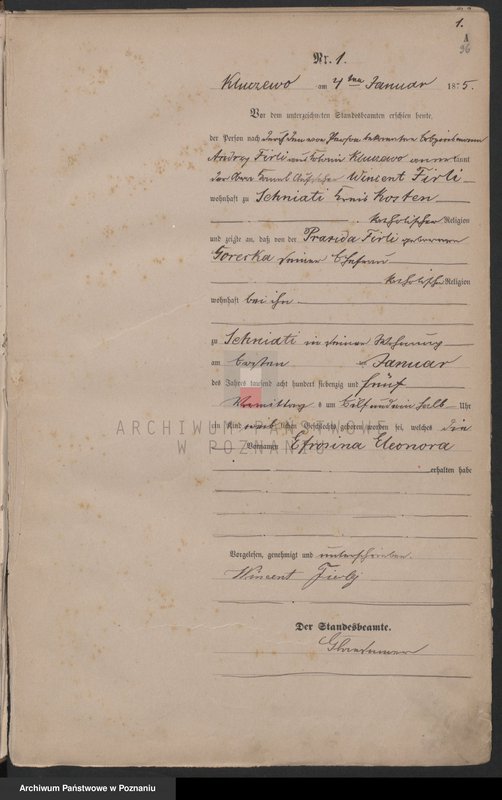 1.
A
96
Nr. 1.
Kluczewo am 4ten Januar 1875.
Vor dem unterzeichneten Standesbeamten erschien heute,
der Person nach durch den von Person bekannten
Andrzej Firli aus Kluczewo anerkannt
der Wincent Firli
wohnhaft zu Schniati Kreis Kosten
katholischer Religion
und zeigte an, daß von der Praxida Firli geborenen
Gorecka seiner Ehefrau
katholischer Religion
wohnhaft bei ihm
zu Schniati in seiner Wohnung
am Ersten Januar
des Jahres tausend acht hundert siebenzig und fünf
Vormittag s um Eilf und ein halb Uhr
ein Kind weib lichen Geschlechts geboren worden sei, welches die
Vornamen Efrosina Eleonora
erhalten habe
Vorgelesen, genehmigt und unterschrieben.
Wincent
Der Standesbeamte.
ARCHIWUM PAŃSTWOWE
W POZNANIU
Archiwum Państwowe w Poznaniu